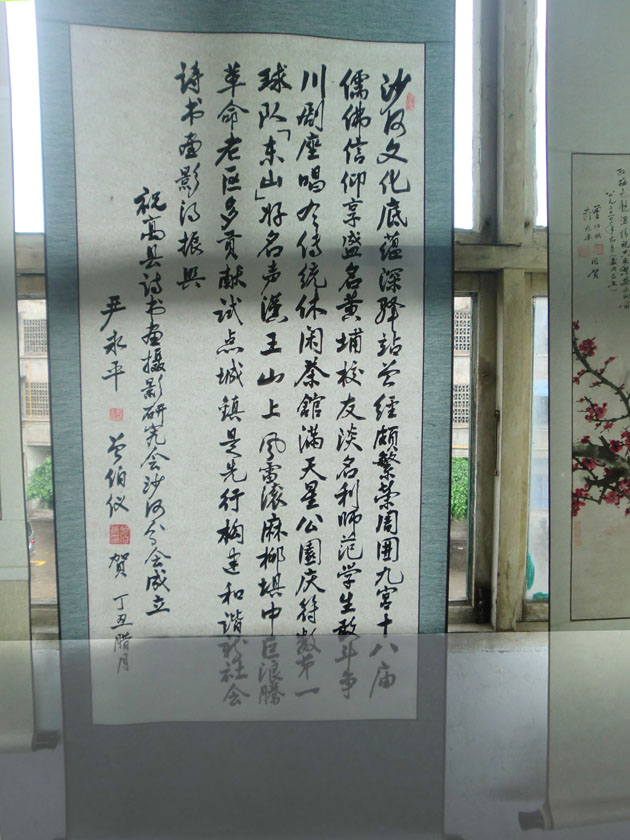 沙河文化底蕴深驿站曾经颇繁荣周围九宫十八庙
儒佛信仰享盛名黄埔校友淡名利师范学生敢斗争
川剧座唱传统休闲茶館满天星公園庆符数第一
球队「东山」好名声漢王山上风雷滚麻柳埧中巨浪腾
革命老区多贡献试点城镇是先行构建和谐新社会
诗书画影得振兴
祝高县诗书画摄影研究会沙河分会成立
严永平 曾伯仪 賀 丁丑腊月